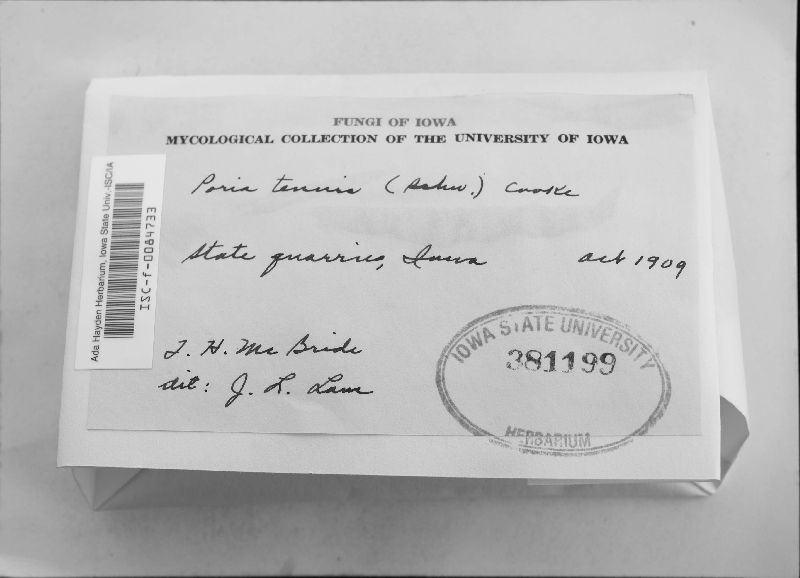 FUNGI OF IOWA
MYCOLOGICAL COLLECTION OF THE UNIVERSITY OF IOWA
Poria tenuis (Schw.) Cooke
State quarries, Iowa Oct 1909
T. H. McBride
det: J. L. Lowe
Ada Hayden Herbarium, Iowa State Univ.-ISC/IA
ISC-f-0084733
IOWA STATE UNIVERSITY
381199
HERBARIUM